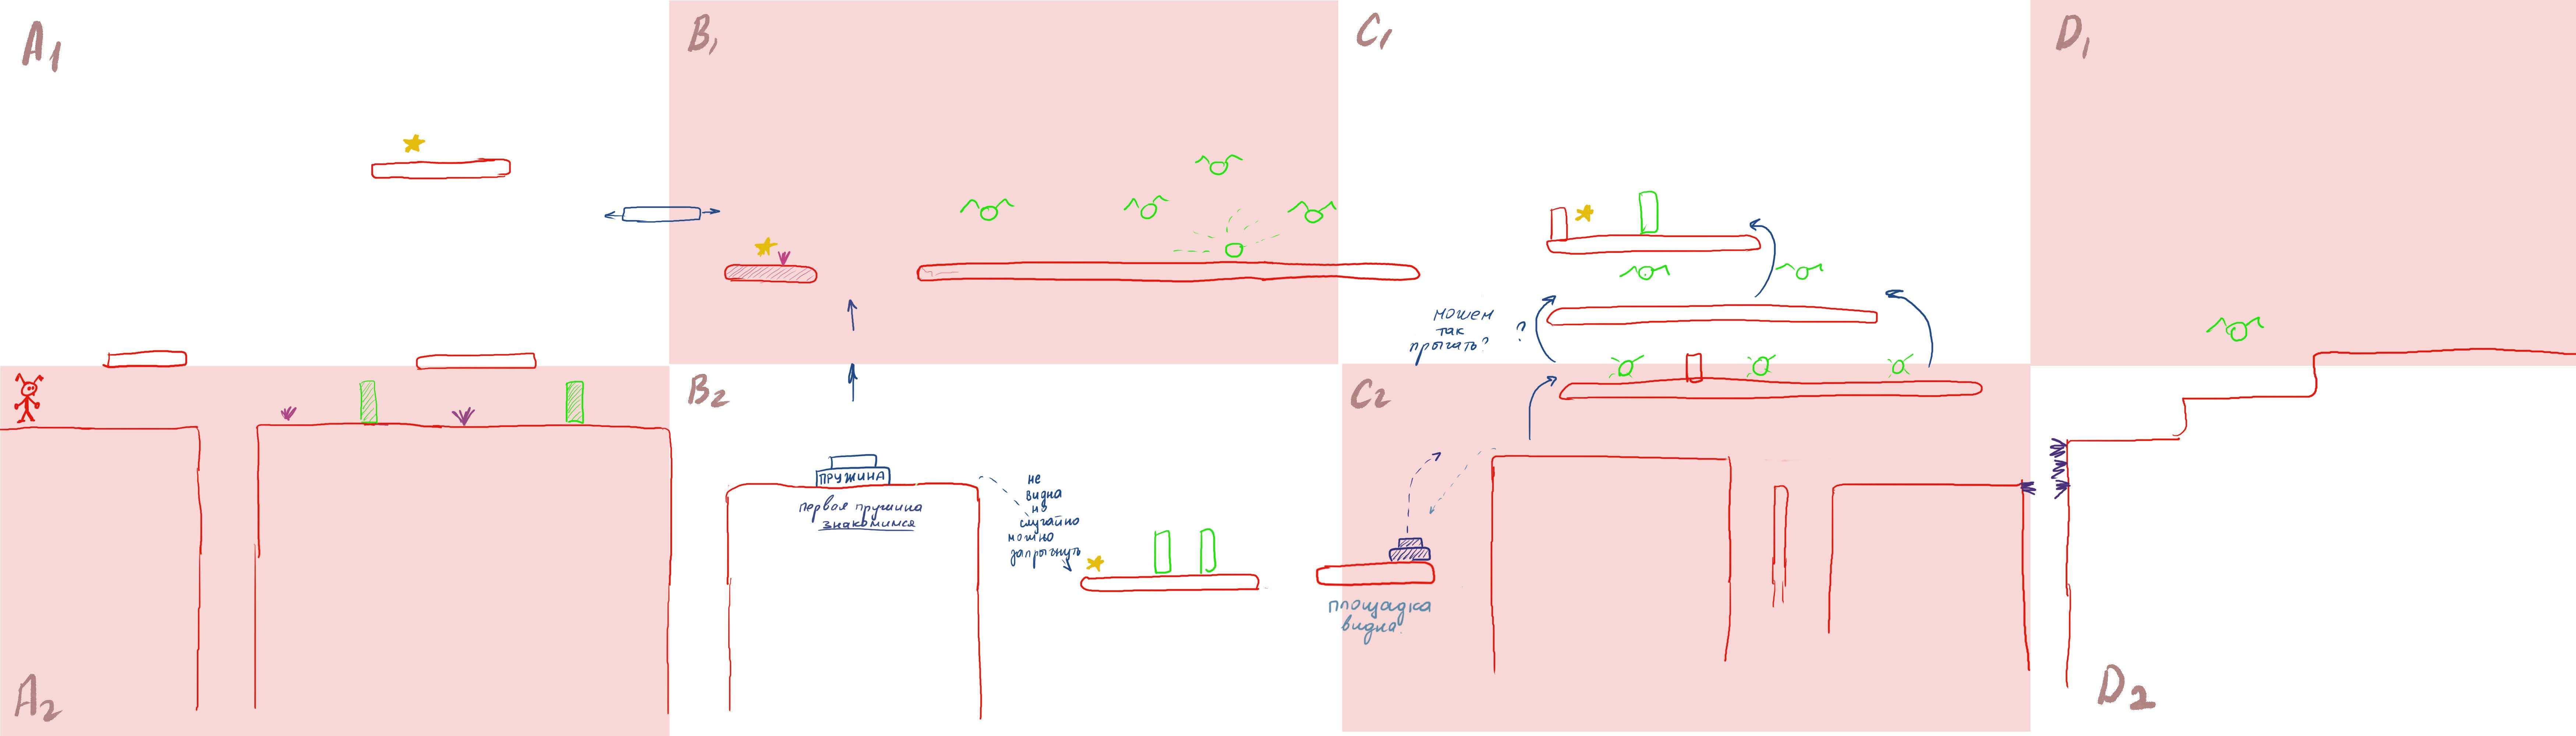 A1
B1
C1
D1
можем
так
прыгать?
?
A2
B2
ПРУЖИНА
первая пружина
знакомимся
не
видна
но
случайно
можно
запрыгнуть
C2
площадка
видна.
D2